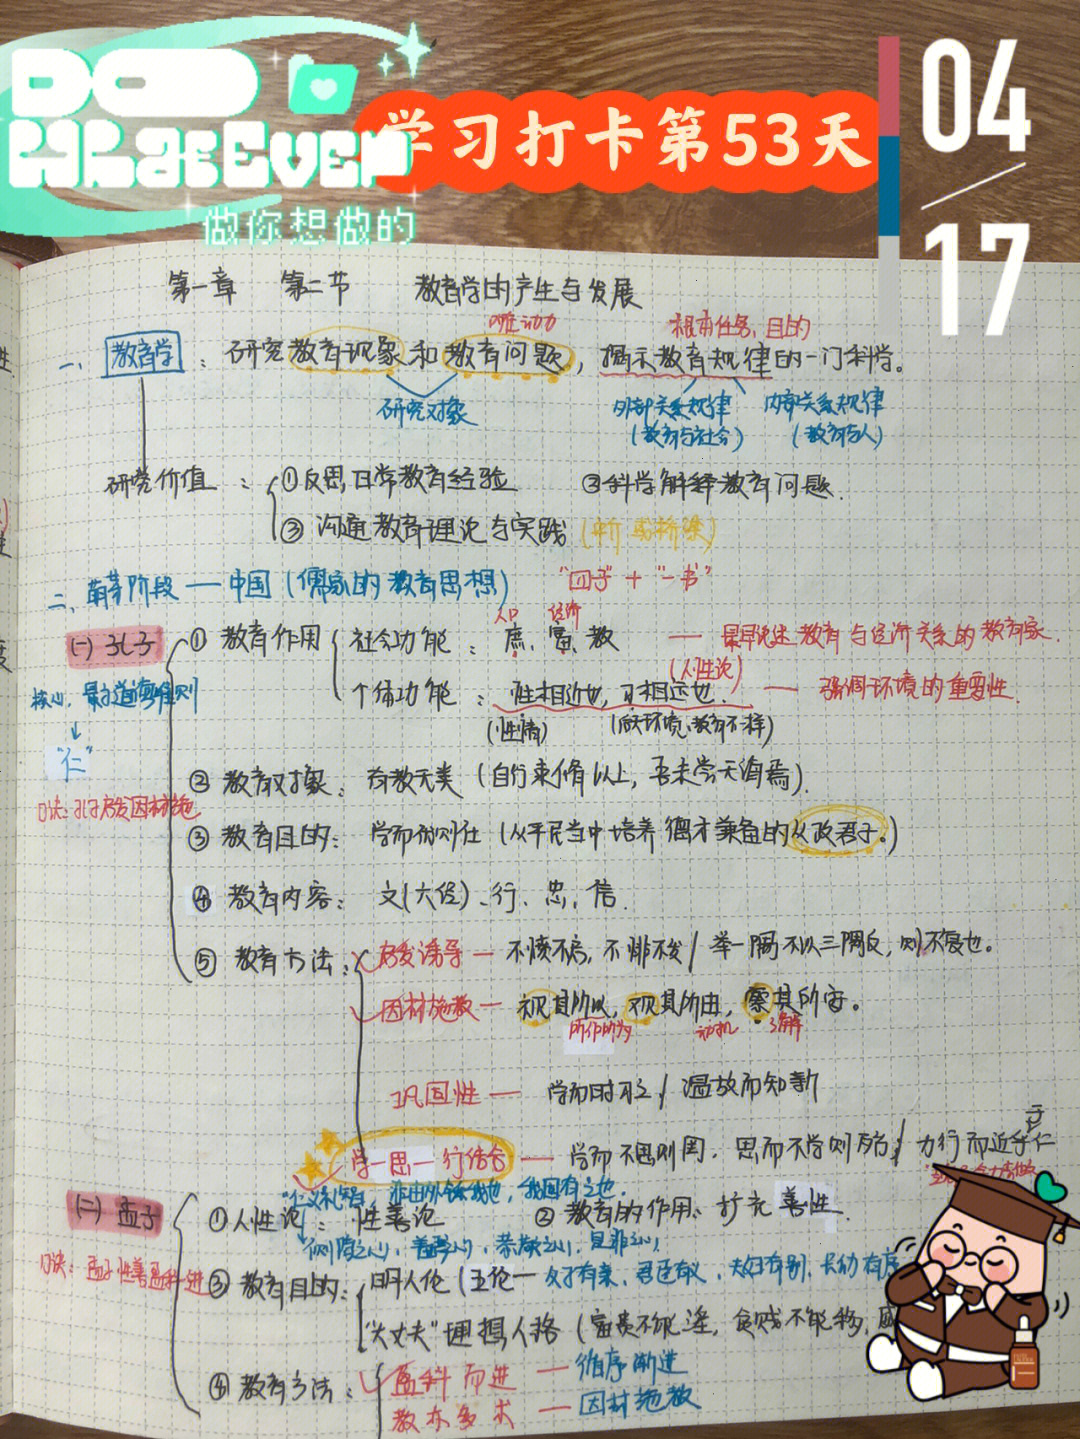 DO
WhatEver
做你想做的
学习打卡第53天
04
17
第一章 第二节 教育学的产生与发展
唯动力
根本任务、目的
一、教育学：研究教育现象和教育问题，揭示教育规律的一门科学。
研究对象
外部关系规律 内部关系规律
(教育与社会) (教育与人)
研究价值：①反思日常教育经验 ②科学解释教育问题.
③沟通教育理论与实践(中介或桥梁)
二、萌芽阶段——中国(儒家的教育思想) "四子"+"一书"
人口 经济
(一)孔子 ①教育作用 社会功能：庶、富、教 — 最早论述教育与经济关系的教育家.
(人性论)
核心、最高道德准则
个体功能：性相近也，习相远也. — 强调环境的重要性.
(性情) (后天环境、教育不一样)
"仁"
②教育对象：有教无类(自行束脩以上，吾未尝无诲焉).
口诀：孔子启发因材施
③教育目的：学而优则仕(从平民当中培养德才兼备的从政君子。)
④教育内容：文(六经)、行、忠、信.
⑤教育方法：启发诱导—不愤不启，不悱不发/举一隅不以三隅反，则不复也。
因材施教—视其所以，观其所由，察其所安。
所作所为 动机 了解
巩固性— 学而时习之/温故而知新
学—思—行结合—学而不思则罔.思而不学则殆/力行而近乎仁
"仁义礼智，非由外铄我也，我固有之也.
(二)孟子 ①人性论：性善论 ②教育的作用：扩充善性.
恻隐之心，羞恶之心，恭敬之心，是非之心
口诀：孟子性善盈科进
③教育目的：明人伦(五伦—父子有亲、君臣有义，夫妇有别，长幼有序
"大丈夫"理想人格(富贵不能淫，贫贱不能移，威
④教育方法：盈科而进—循序渐进
教亦多术—因材施教